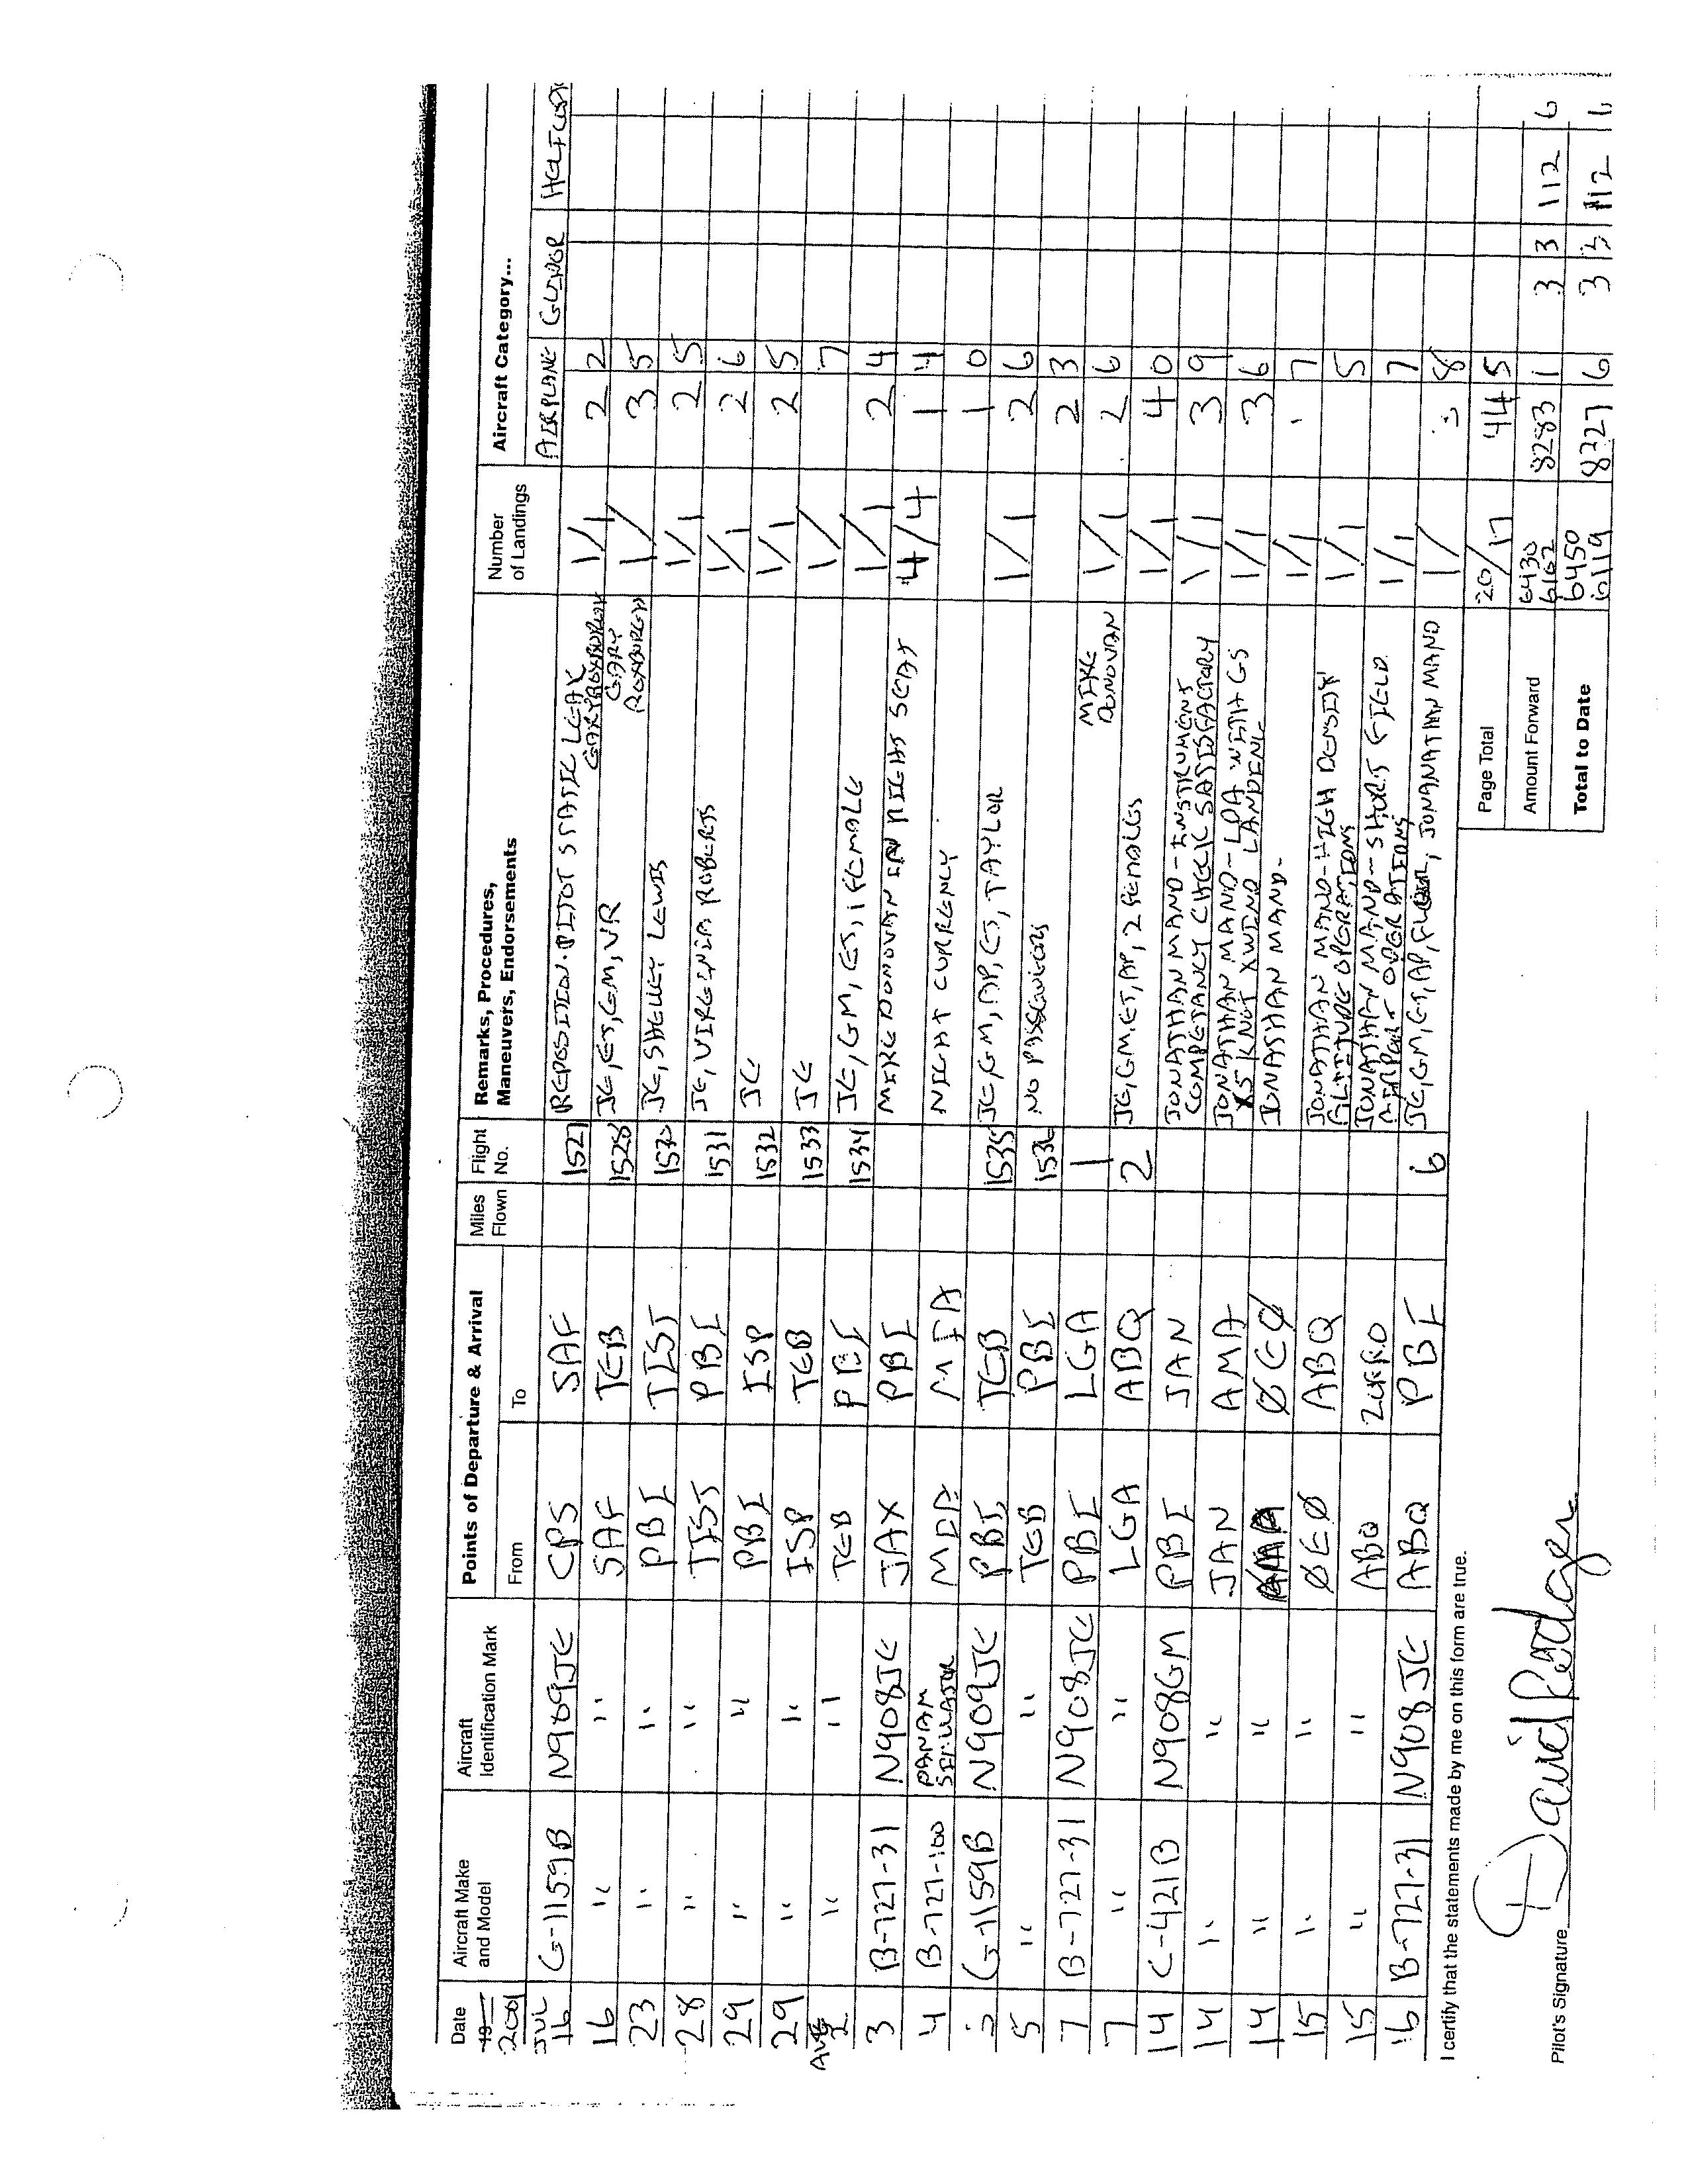 Date
Aircraft Make and Model
Aircraft Identification Mark
Points of Departure & Arrival
Miles Flown
Flight No.
Remarks, Procedures, Maneuvers, Endorsements
Number of Landings
Aircraft Category...
19
2001
From
To
AIRPLANE
GLIDER
JUL
16 G-1159B N909JE CPS SAF 1527 REPOSITION. PITOT STATIC LEAK GARY ROXBURGH 1/1 2 2
16 " " SAF TEB 1528 JE, ET, GM, VR GARY ROXBURGH 1/ 3 5
23 " " PBI TIST 1530 JE, SHELLEY LEWIS 1/1 2 5
28 " " TIST PBI 1531 JE, VIRGINIA ROBERTS 1/1 2 6
29 " " PBI ISP 1532 JE 1/1 2 5
29 " " ISP TEB 1533 JE 1/ 7
AUG
" " TEB PBI 1534 JE, GM, ET, 1 FEMALE 1/1 2 4
3 B-727-31 N908JE JAX PBI MIKE DONOVAN IN RIGHT SEAT 4/4 1 4
4 B-727-100 PANAM SIMULATOR MIA MIA NIGHT CURRENCY 1 0
5 G-1159B N909JE PBI TEB 1535 JE, GM, AP, ET, TAYLOR 1/1 2 6
5 " " TEB PBI 1536 NO PASSENGERS 2 3
7 B-727-31 N908JE PBI LGA 1 MIKE DONOVAN 1/1 2 6
7 " " LGA ABQ 2 JE, GM, ET, AP, 2 FEMALES 1/1 4 0
14 C-421B N908GM PBI JAN JONATHAN MANO - INSTRUMENT COMPETANCY CHECK SATISFACTORY 1/1 3 9
14 " " JAN AMA JONATHAN MANO - LOA WITH GS X5 KNOT XWIND LANDING 1/1 3 6
14 " " AMA ØEØ JONATHAN MANO. 1/1 7
15 " " ØEØ ABQ JONATHAN MANO - HIGH DENSITY ALTITUDE OPERATIONS 1/1 5
15 " " ABQ ZORRO JONATHAN MANO - SHORT FIELD AIRPORT OPERATIONS 1/1 7
16 B-727-31 N908JE ABQ PBI 6 JE, GM, ET, AP, JONANATHAN MANO 1/ 3 8
I certify that the statements made by me on this form are true.
Page Total 20/17 44 5
Amount Forward 6430 6102 8283 1 3 3 112 6
Total to Date 6450 6119 8327 6 3 3 112 6
Pilot's Signature David Rodgers